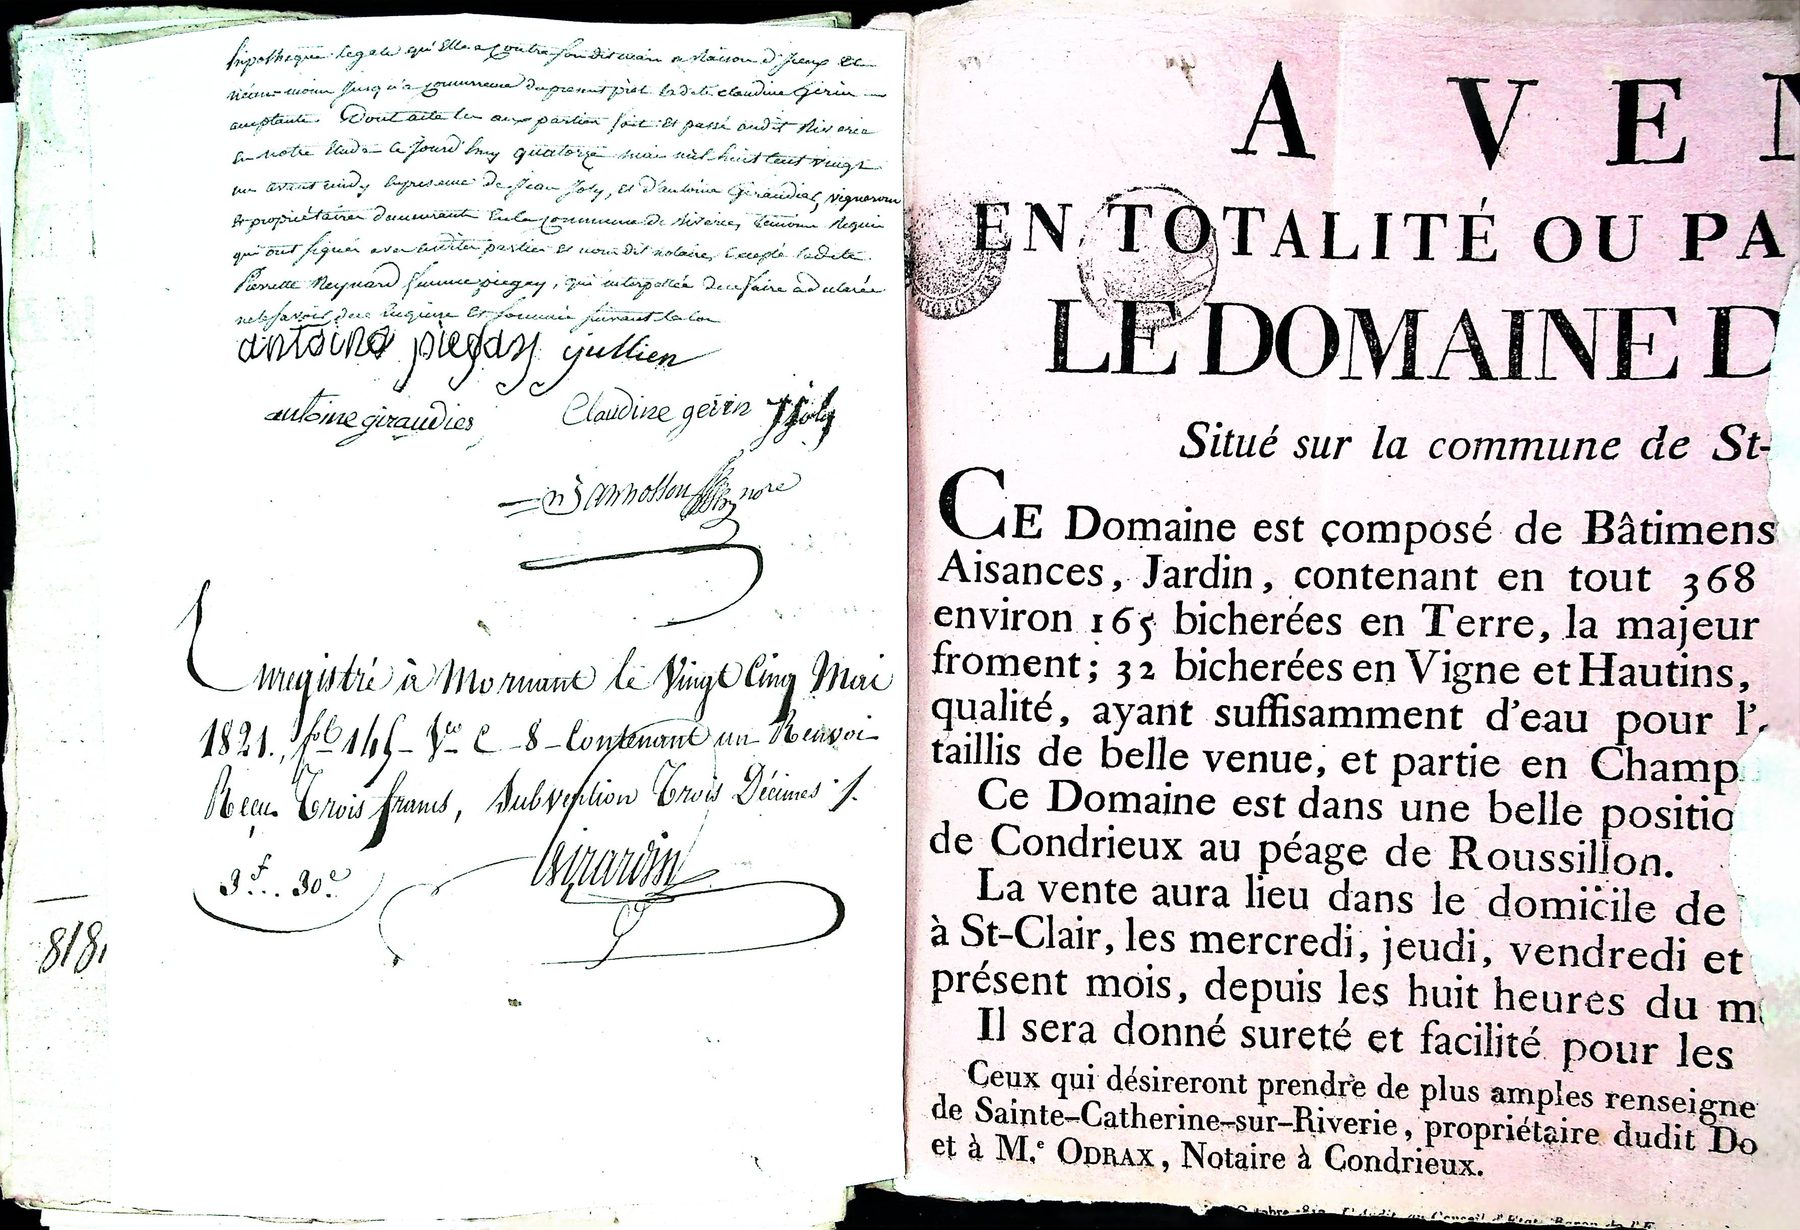 hipothèque légale qu'Elle a contre son dit mari à Raison d'Iceux Et
néanmoins jusqu'à concurrence du présent prêt ladite Claudine Gerin
acceptante. Dont acte lu aux parties fait et passé audit Riverie
En notre Etude le jourd'huy quatorze mai mil huit cent vingt
un avant midy En présence de Jean Joly, et d'antoine Giraudier, vignerons
et propriétaires demeurant En la commune de Riverie, témoins Requis
qui ont signés avec lesdites parties et nous dit notaire, Excepté ladite
Pierrette Reynard femme piegay, qui interpellée de ce faire a déclarée
ne le savoir de ce enquise Et sommée suivant la loi
antoine piegay jullien
antoine giraudier Claudine gerin J Joly
nore
Enregistré à Mornant le Vingt Cinq Mai
1821. fol 145 Vo C 8 Contenant un Renvoi
Reçu Trois francs, subvention Trois Décimes
3f. 30c
Girardin
818
A VEN
EN TOTALITÉ OU PA
LE DOMAINE D
Situé sur la commune de St-
CE Domaine est composé de Bâtimens
Aisances, Jardin, contenant en tout 368
environ 165 bicherées en Terre, la majeur
froment; 32 bicherées en Vigne et Hautins,
qualité, ayant suffisamment d'eau pour l'
taillis de belle venue, et partie en Champ
Ce Domaine est dans une belle positio
de Condrieux au péage de Roussillon.
La vente aura lieu dans le domicile de
à St-Clair, les mercredi, jeudi, vendredi et
présent mois, depuis les huit heures du m
Il sera donné sureté et facilité pour les
Ceux qui désireront prendre de plus amples renseigne
de Sainte-Catherine-sur-Riverie, propriétaire dudit Do
et à M.e ODRAX, Notaire à Condrieux.